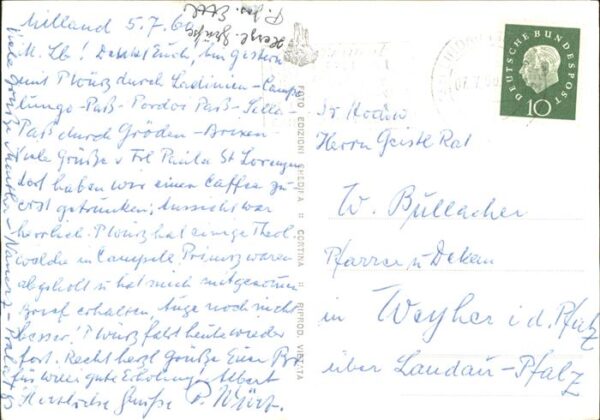 Milland 5.7.60
M. Lb! Denkt Euch, bin gestern
mit P Würz durch Ladinien-Campo
lungo-Paß-Pordoi Paß-Sella-
Paß durch Gröden-Brixen
Viele Grüße v Frl Paula St Lorenzen
dort haben wir einen Caffee zu
erst getrunken; Aussicht war
herrlich. P Würz hat einige Theol.
welche in Campill Primiz waren
abgeholt u hat mich mitgenommen
Brief erhalten, Auge noch nicht
besser! P Würz fährt heute wieder
fort. Recht herzl Grüße Euer Br
für weis gute Erholung! Albert
Herzliche Grüße P. Würz.
Viele Grüße
Herzl. Grüße
P. Jos.
FOTO EDIZIONI GHEDINA CORTINA RIPROD VIETATA
DEUTSCHE BUNDESPOST
10
Sr Hochw
Herrn Geistl Rat
W. Büllacher
Pfarrer u Dekan
in Weyher i. d. Pfalz
über Landau-Pfalz